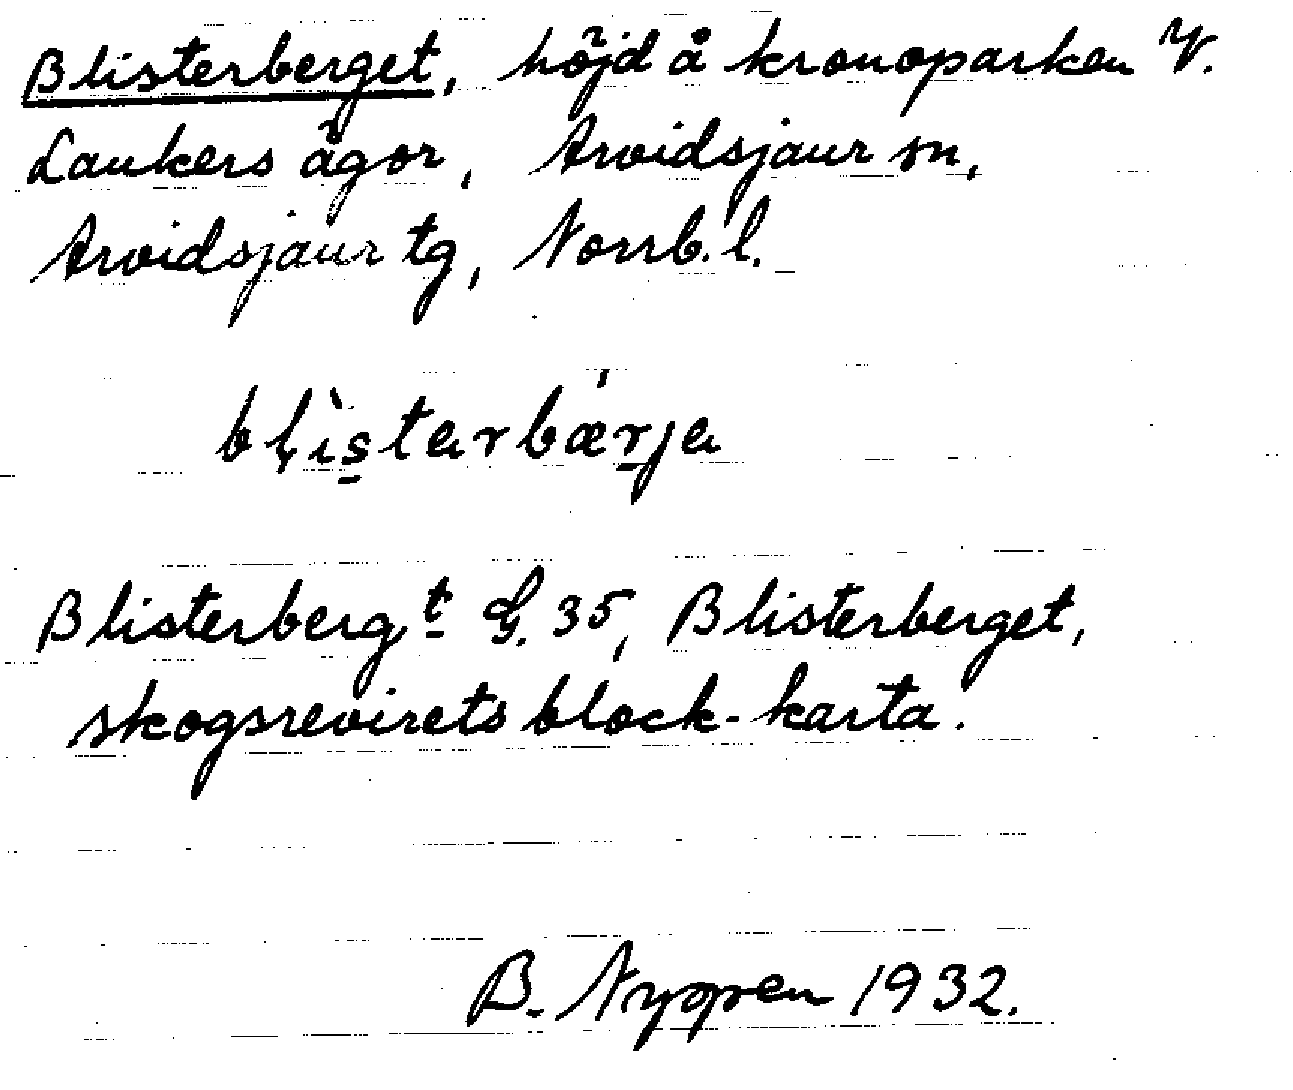 Blisterberget, höjd å kronoparken V.
Laukers ägor, Arvidsjaur sn,
Arvidsjaur tg, Norrb. l.
blìstarbæŕja
Blisterbergt G. 35, Blisterberget,
skogsrevirets block-karta.
B. 1932.